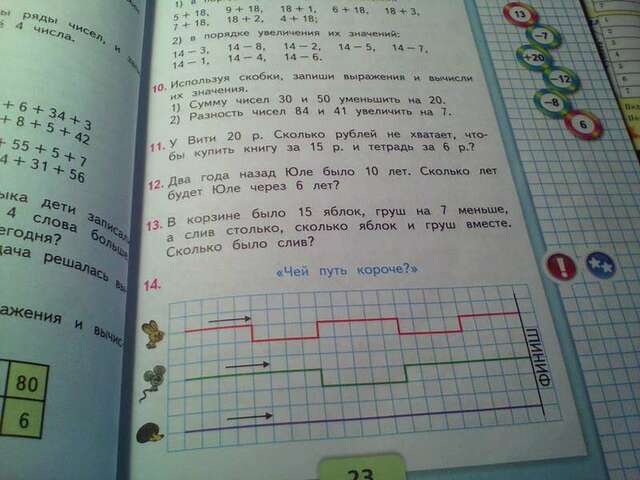 ры ряды чисел, и
4 числа.
+ 6 + 34 + 3
+ 8 + 5 + 42
+ 55 + 5 + 7
4 + 31 + 56
дети
4 слова
егодня?
дача решалась
ражения и
80
6
1)
5 + 18, 9 + 18, 18 + 1, 6 + 18, 18 + 3,
7 + 18, 18 + 2, 4 + 18;
2) в порядке увеличения их значений:
14 − 3, 14 − 8, 14 − 2, 14 − 5, 14 − 7,
14 − 1, 14 − 4, 14 − 6.
10. Используя скобки, запиши выражения и вычисли
их значения.
1) Сумму чисел 30 и 50 уменьшить на 20.
2) Разность чисел 84 и 41 увеличить на 7.
11. У Вити 20 р. Сколько рублей не хватает, что-
бы купить книгу за 15 р. и тетрадь за 6 р.?
12. Два года назад Юле было 10 лет. Сколько лет
будет Юле через 6 лет?
13. В корзине было 15 яблок, груш на 7 меньше,
а слив столько, сколько яблок и груш вместе.
Сколько было слив?
14. «Чей путь короче?»
ФИНИШ
23
13
−7
+20
−12
−8
6
!